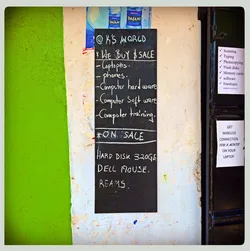 @ K's WORLD
! WE BUY $ SALE
- Laptops.
- phones.
- Computer hard ware
- Computer Soft ware
- Computer training.
* ON SALE
HARD DISK 320GB
DELL MOUSE.
REAMS.
GET
WIRELESS
CONNECTION
FOR A MONTH
ON YOUR
LAPTOP